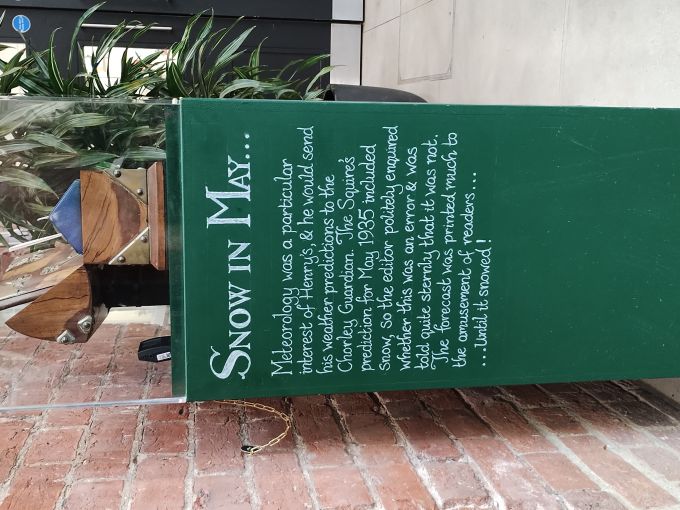 Snow in May...
Meteorology was a particular
interest of Henry's, & he would send
his weather predictions to the
Chorley Guardian. The Squire's
prediction for May 1935 included
snow, so the editor politely enquired
whether this was an error & was
told quite sternly that it was not.
The forecast was printed much to
the amusement of readers ...
...Until it snowed!